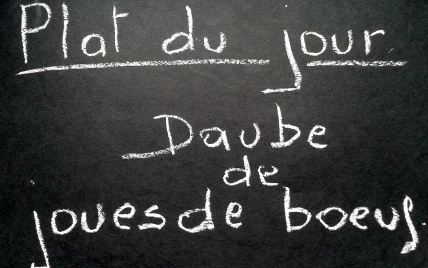 Plat du jour
Daube
de
joues de boeuf.